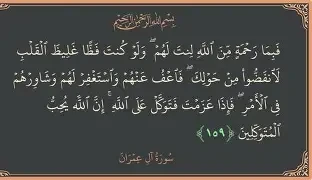 بِسْمِ اللَّهِ الرَّحْمَٰنِ الرَّحِيمِ
فَبِمَا رَحْمَةٍ مِّنَ اللَّهِ لِنتَ لَهُمْ ۖ وَلَوْ كُنتَ فَظًّا غَلِيظَ الْقَلْبِ
لَانفَضُّوا مِنْ حَوْلِكَ ۖ فَاعْفُ عَنْهُمْ وَاسْتَغْفِرْ لَهُمْ وَشَاوِرْهُمْ
فِى الْأَمْرِ ۖ فَإِذَا عَزَمْتَ فَتَوَكَّلْ عَلَى اللَّهِ ۚ إِنَّ اللَّهَ يُحِبُّ
الْمُتَوَكِّلِينَ ﴿١٥٩﴾
سُورَةُ آلِ عِمْرَانَ